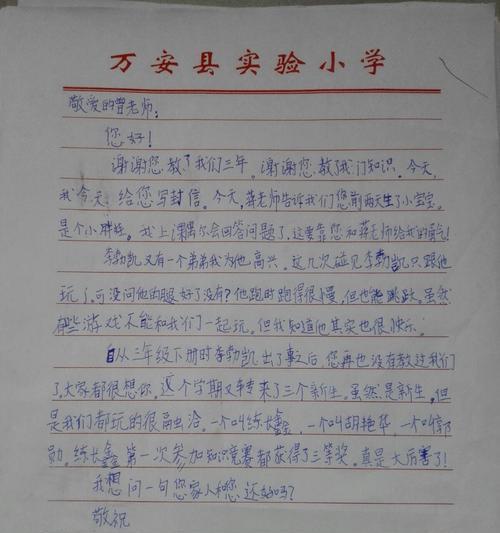 万安县实验小学
敬爱的曾老师:
您好!
谢谢您教了我们三年。谢谢您教了我们知识。今天,
我今天给您写封信。今天,蒋老师告诉我们您前两天生了小宝宝,
是个小胖娃。我上课偶尔会回答问题了,这要靠您和蒋老师给我的勇气!
李勃凯又有一个弟弟我为他高兴。这几次碰见李勃凯只跟他
玩了,可没问他的眼好了没有?他跑时跑得很慢,但也能跳跃。虽然
有些游戏不能和我们一起玩。但我知道他其实也很快乐。
自从三年级下册时李勃凯出了事之后,您再也没有教过我们
了。大家都很想你。这个学期又转来了三个新生。虽然是新生。但
是我们都玩的很融洽。一个叫练长鑫,一个叫胡艳华,一个叫
勋。练长鑫第一次参加知识竞赛都获得了三等奖。真是太厉害了!
我想问一句您家人和您还好吗?
敬祝